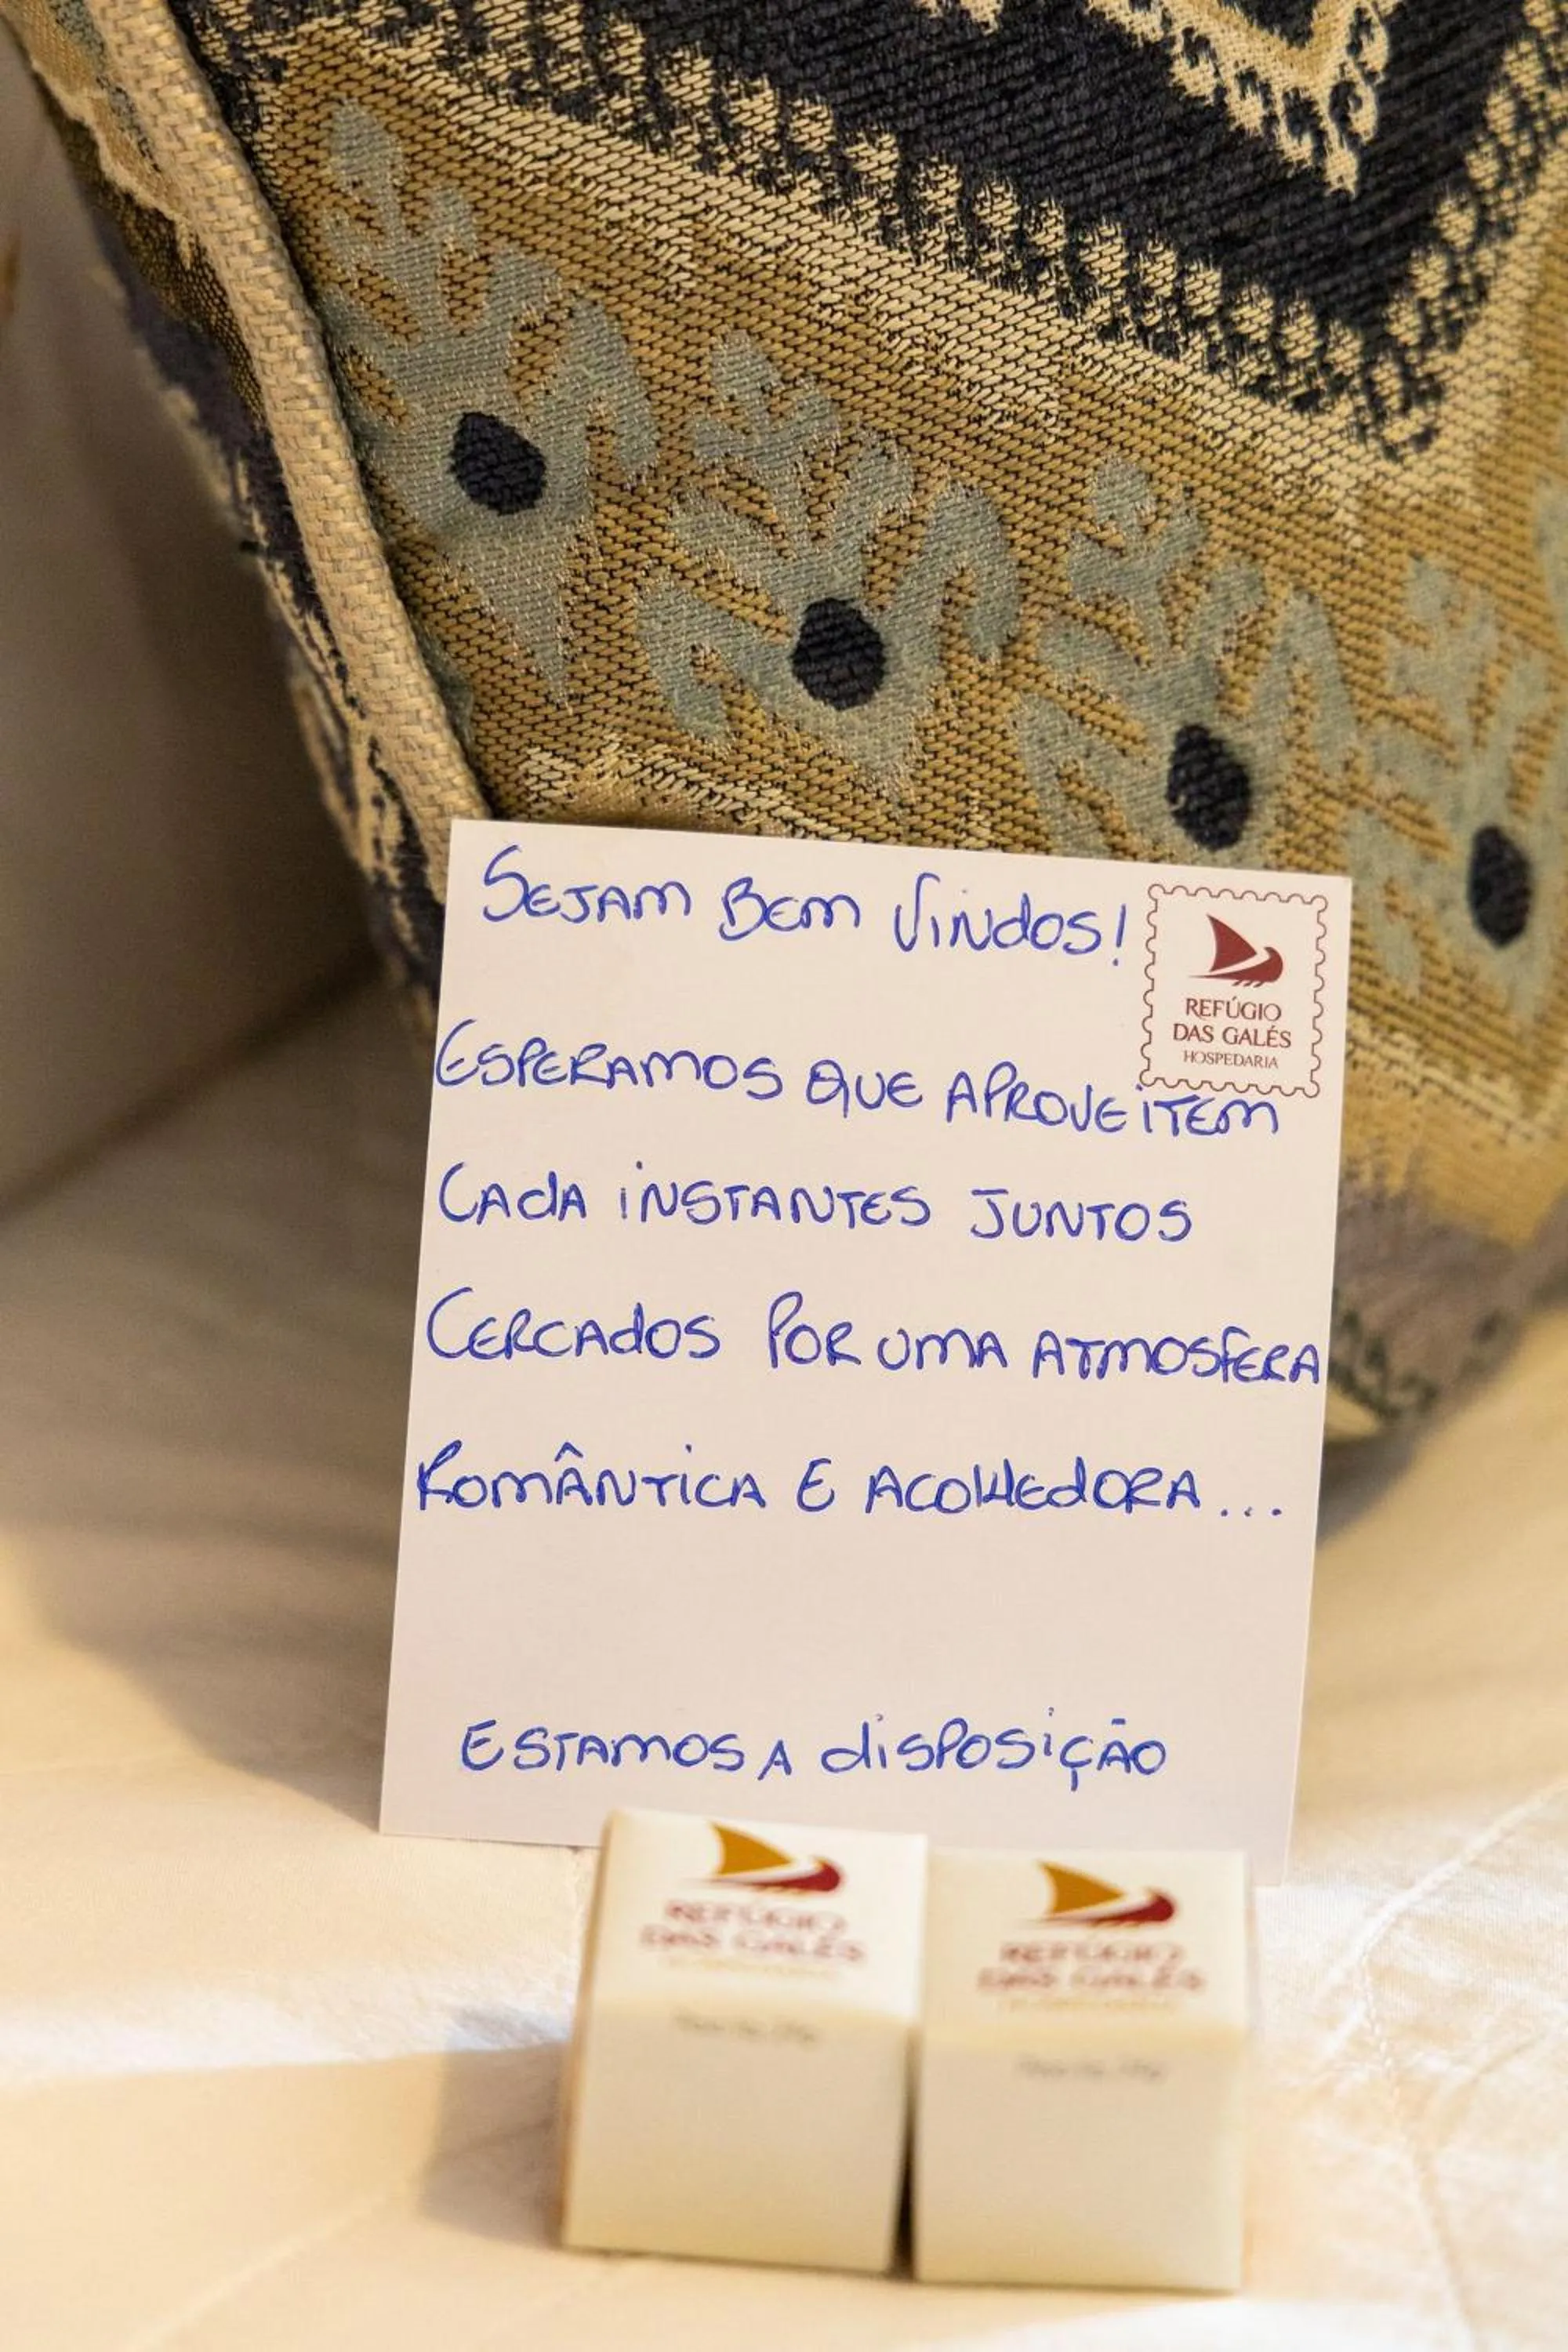 SEJAM BEM VINDOS!
REFÚGIO
DAS GALÉS
HOSPEDARIA
ESPERAMOS QUE APROVEITEM
CADA INSTANTES JUNTOS
CERCADOS POR UMA ATMOSFERA
ROMÂNTICA E ACOLHEDORA...
ESTAMOS A DISPOSIÇÃO
REFÚGIO
DAS GALÉS
REFÚGIO
DAS GALÉS